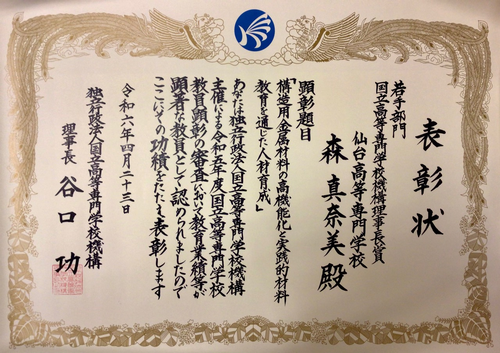 表彰状
若手部門
国立高等専門学校機構理事長賞
仙台高等専門学校
森 真奈美 殿
顕彰題目
「構造用金属材料の高機能化と実践的材料
教育を通じた人材育成」
あなたは独立行政法人国立高等専門学校機構
主催による令和五年度国立高等専門学校
教育顕彰の審査において教育業績等が
顕著な教員として認められましたので
ここにその功績をたたえ表彰します
令和六年四月二十三日
独立行政法人国立高等専門学校機構
理事長 谷口 功